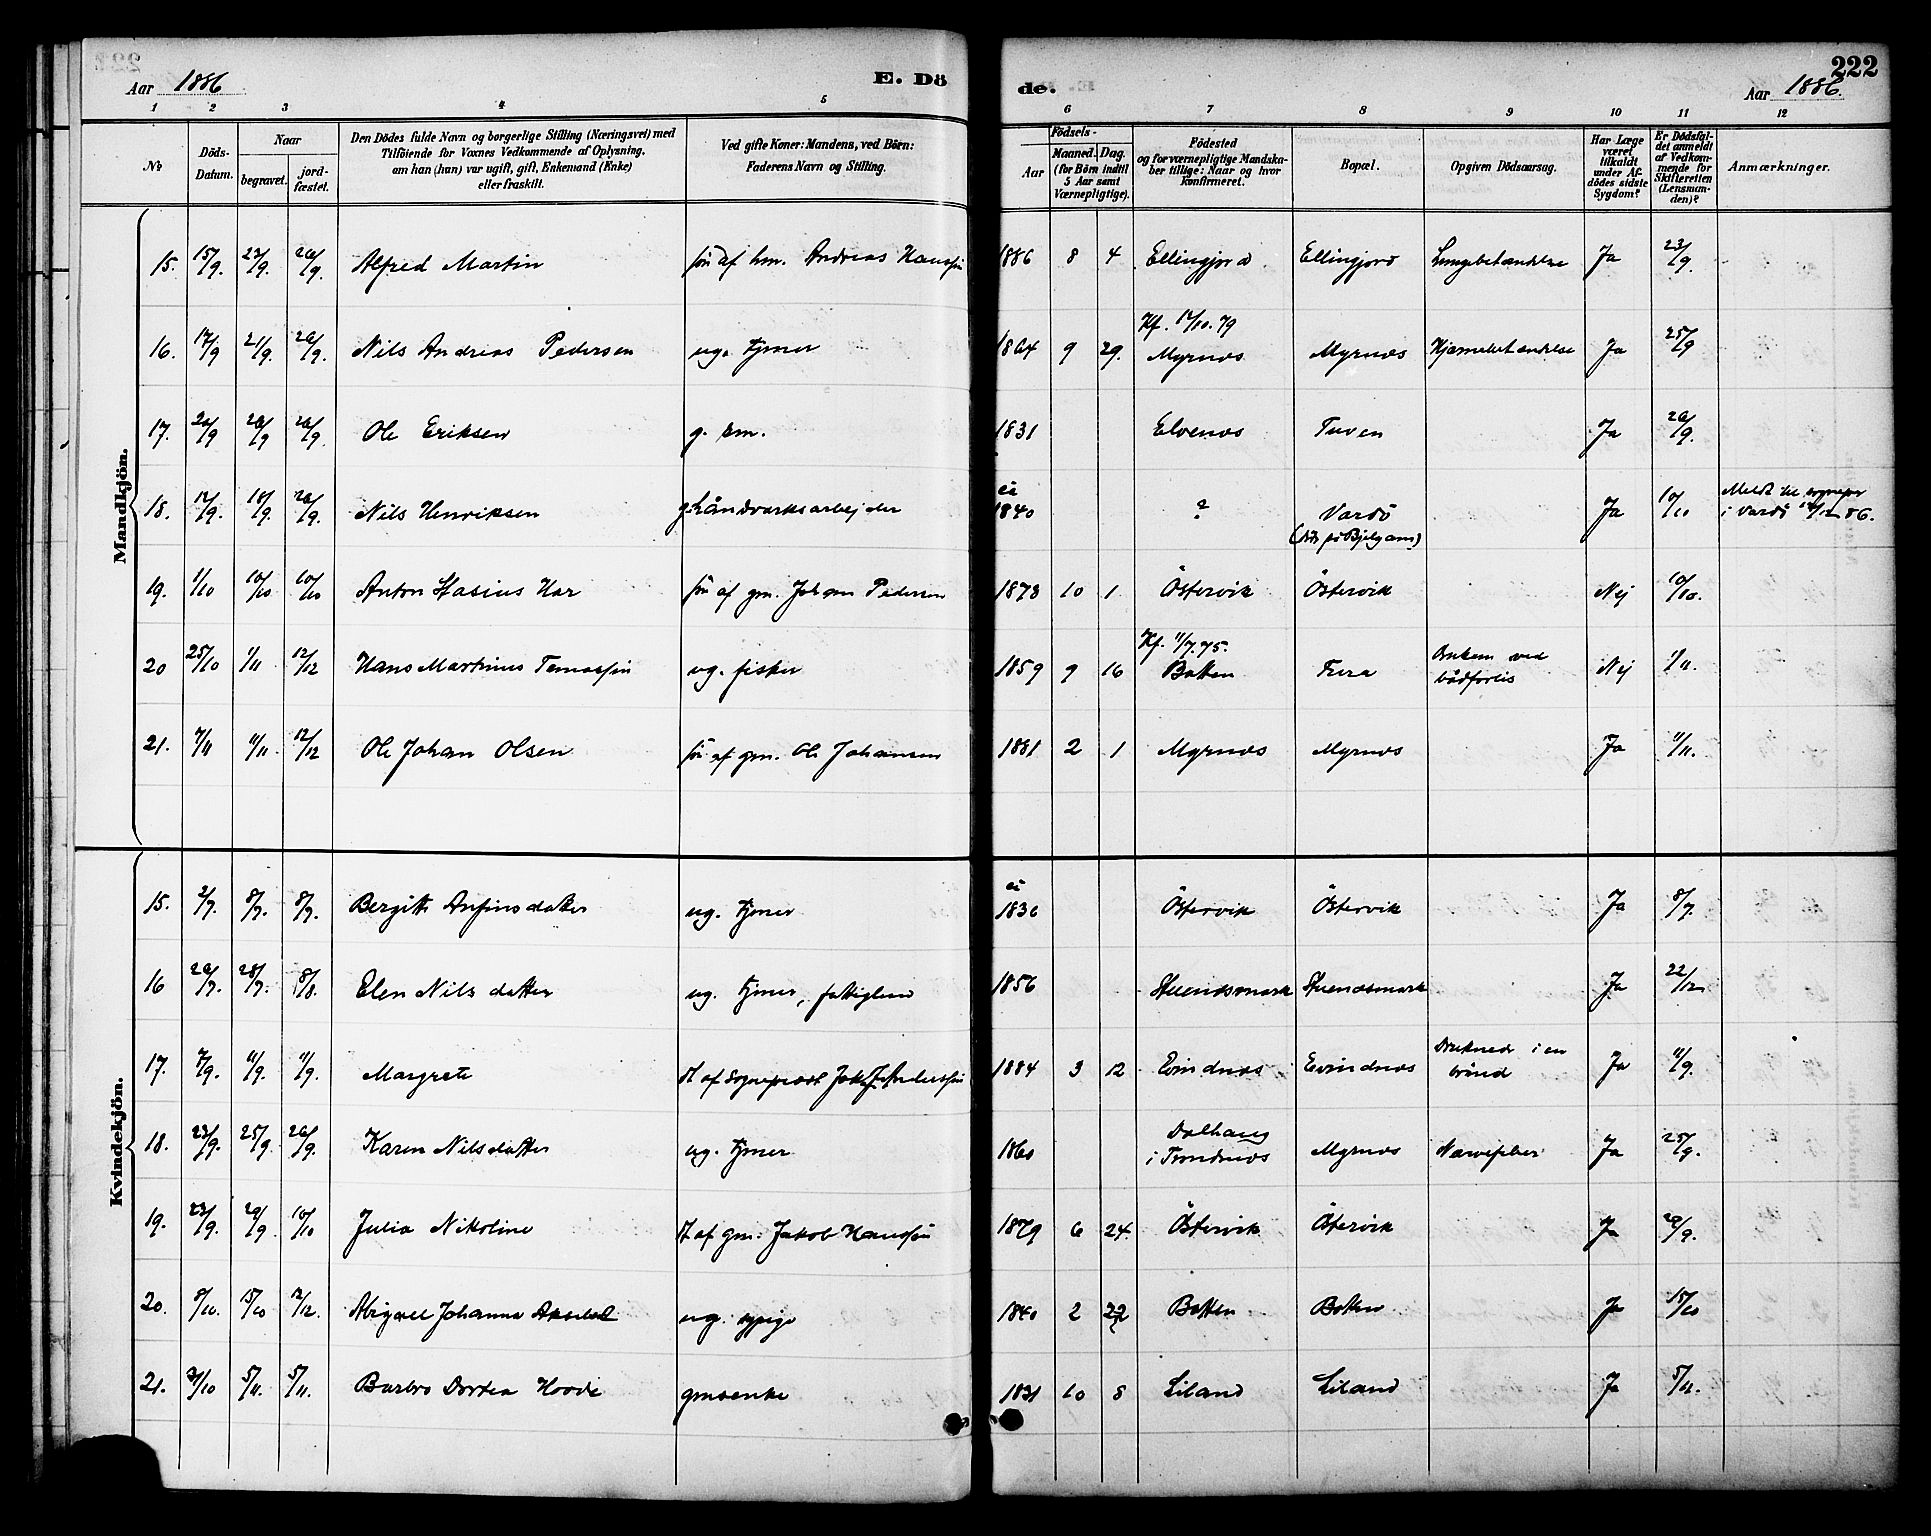 Aar 1886
E. Dö
de.
222
Aar 1886.
1 2 3 4 5 6 7 8 9 10 11 12
No
Döds-
Datum.
Naar
begravet.
jord-
fæstet.
Den Dödes fulde Navn og borgerlige Stilling (Næringsvei) med
Tilföiende for Voxnes Vedkommende af Oplysning,
om han (hun) var ugift, gift, Enkemand (Enke)
eller fraskilt.
Ved gifte Koner: Mandens, ved Börn:
Faderens Navn og Stilling.
Födsels-
Aar
Maaned. Dag.
(for Börn indtil
5 Aar samt
Værnepligtige).
Födested
og for værnepligtige Mandska-
ber tillige: Naar og hvor
konfirmeret.
Bopæl.
Opgiven Dödsaarsag.
Har Læge
været
tilkaldt
under Af-
dödes sidste
Sygdom?
Er Dödsfal-
det anmeldt
af Vedkom-
mende for
Skifteretten
(Lensman-
den)?
Anmærkninger.
Mandkjön.
15. 15/9. 22/9. 26/9. Alfred Martin sön af hm. Andreas Hanssön 1886 8 4 Ellingjord Ellingjord Lungebetændelse Ja 23/9.
16. 17/9 21/9. 26/9. Nils Andreas Pedersen ug. tjener 1864 9 29. Kf. 12/10.79
Myrnæs Myrnæs Hjernebetændelse Ja 25/9
17. 20/9 26/9 26/9. Ole Eriksen g. hm. 1831 Elvenæs Tuven Ja 26/9.
18. 12/9. 18/9. 26/9. Nils Henriksen g. håndværksarbejder ca
1840 ? Vardö
Ja 10/10 Meldt til sognepr
i Vardö 86.
19. 1/10 10/10 10/10 Anton Stasius Har sön af gm. Johan Pedersen 1873 10 1 Östervik Östervik Nej 10/10.
20 25/10 1/11 12/12 Hans Martinus Tomassön ug. fisker 1859 9 16 Kf. 11/7.75.
Botten Omkom ved
bådforlis Nej 1/11.
21. 7/11 11/11. 12/12 Ole Johan Olsen sön af gm. Ole Johansen 1881 2 1 Myrnæs Myrnæs Ja 11/11.
Kvindekjön.
15. 2/7. 8/7. 8/7. Bergitte Anfinsdatter ug. tjener ca
1836 Östervik Östervik Ja 8/7.
16 20/7. 28/7. 8/8. Elen Nilsdatter ug. tjener, fattiglem 1856 Stuendsmark Stuendsmark Ja 22/12
17. 7/9. 11/9. 11/9. Margrete dt af Sogneprest 1884 3 12 Evindnæs Evindnæs Druknede i en
brönd Ja 11/9.
18. 23/9. 25/9. 26/9. Karen Nilsdatter ug. tjener 1860 Dalhaug
i Trondenæs Myrnæs Nervefeber Ja 25/9.
19. 23/9. 29/9. 10/10 Julia Nikoline dt af gm. Jakob Hanssön 1879 6 24. Östervik Östervik Ja 29/9.
20. 8/10. 15/10 12/12. Abigael Johanna ug. sypige 1840 2 22 Botten Botten Ja 15/10
21. 31/10 5/11. 5/11. Barbro Dortea Hovde gmsenke 1831 10 8 Liland Liland Ja 5/11.